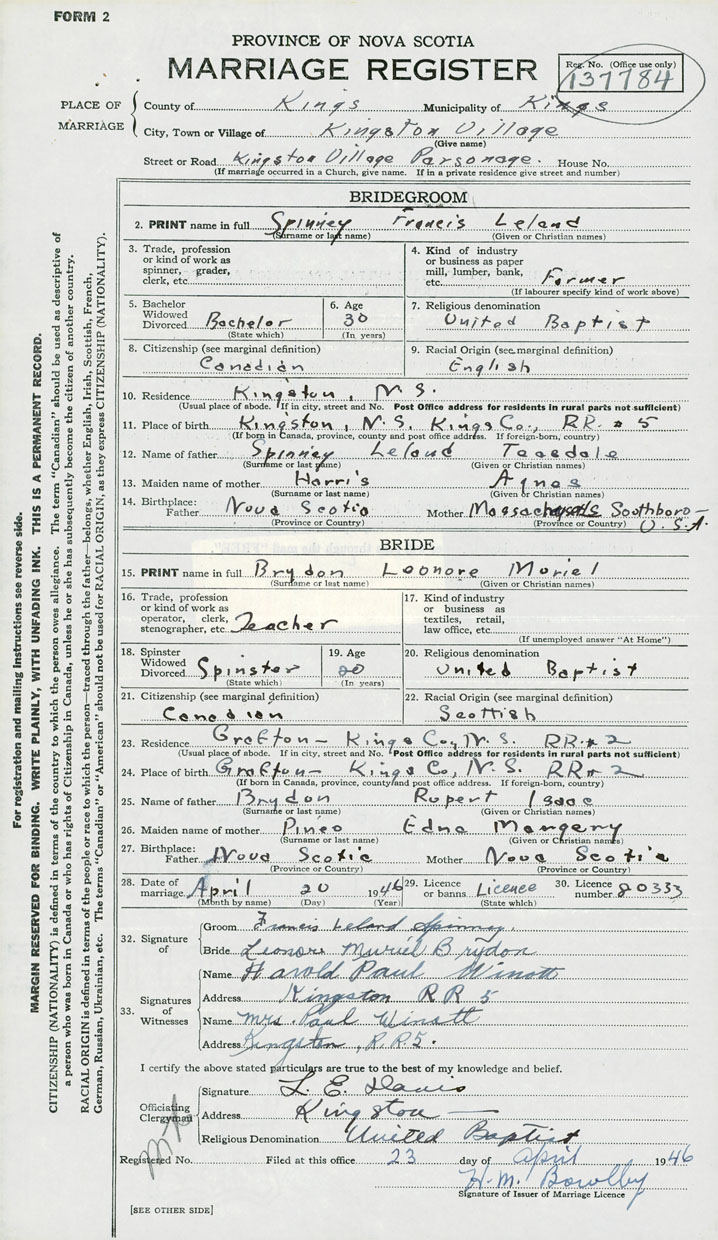 FORM 2
PROVINCE OF NOVA SCOTIA
MARRIAGE REGISTER
Reg. No. (Office use only)
137784
PLACE OF MARRIAGE
County of Kings Municipality of Kings
City, Town or Village of Kingston Village
(Give name)
Street or Road Kingston Village Parsonage. House No.
(If marriage occurred in a Church, give name. If in a private residence give street and number)
BRIDEGROOM
2. PRINT name in full Spinney Francis Leland
(Surname or last name) (Given or Christian names)
3. Trade, profession or kind of work as spinner, grader, clerk, etc.
4. Kind of industry or business as paper mill, lumber, bank, etc. Farmer
(If labourer specify kind of work above)
5. Bachelor Widowed Divorced Bachelor
(State which)
6. Age 30
(In years)
7. Religious denomination
United Baptist
8. Citizenship (see marginal definition)
Canadian
9. Racial Origin (see marginal definition)
English
10. Residence Kingston, N.S.
(Usual place of abode. If in city, street and No. Post Office address for residents in rural parts not sufficient)
11. Place of birth Kingston, N.S. Kings Co., RR. # 5
(If born in Canada, province, county and post office address. If foreign-born, country)
12. Name of father Spinney Leland Teasdale
(Surname or last name) (Given or Christian names)
13. Maiden name of mother Harris Agnes
(Surname or last name) (Given or Christian names)
14. Birthplace: Father Nova Scotia Mother Massachusetts Southboro- U.S.A.
(Province or Country) (Province or Country)
BRIDE
15. PRINT name in full Brydon Leonore Muriel
(Surname or last name) (Given or Christian names)
16. Trade, profession or kind of work as operator, clerk, stenographer, etc. Teacher
17. Kind of industry or business as textiles, retail, law office, etc.
(If unemployed answer "At Home")
18. Spinster Widowed Divorced Spinster
(State which)
19. Age 20
(In years)
20. Religious denomination
United Baptist
21. Citizenship (see marginal definition)
Canadian
22. Racial Origin (see marginal definition)
Scottish
23. Residence Grafton- Kings Co., N.S. RR.# 2
(Usual place of abode. If in city, street and No. Post Office address for residents in rural parts not sufficient)
24. Place of birth Grafton- Kings Co, N.S. RR# 2
(If born in Canada, province, county and post office address. If foreign-born, country)
25. Name of father Brydon Rupert Isaac
(Surname or last name) (Given or Christian names)
26. Maiden name of mother Pineo Edna Mangery
(Surname or last name) (Given or Christian names)
27. Birthplace: Father Nova Scotia Mother Nova Scotia
(Province or Country) (Province or Country)
28. Date of marriage April 20 1946
(Month by name) (Day) (Year)
29. Licence or banns Licence
(State which)
30. Licence number 20333
32. Signature of
Groom Francis Leland Spinney.
Bride Leonore Muriel Brydon
33. Signatures of Witnesses
Name Harold Paul Winott
Address Kingston RR 5
Name Mrs. Paul Winott
Address Kingston, R.R.5.
I certify the above stated particulars are true to the best of my knowledge and belief.
Officiating Clergyman
Signature L. E. Davis
Address Kingston
Religious Denomination United Baptist
Registered No. Filed at this office 23 day of April 1946
H. M. Bowlby
Signature of Issuer of Marriage Licence
[SEE OTHER SIDE]
For registration and mailing instructions see reverse side.
MARGIN RESERVED FOR BINDING. WRITE PLAINLY, WITH UNFADING INK. THIS IS A PERMANENT RECORD.
CITIZENSHIP (NATIONALITY) is defined in terms of the country to which the person owes allegiance. The term "Canadian" should be used as descriptive of
a person who was born in Canada or who has rights of Citizenship in Canada, unless he or she has subsequently become the citizen of another country.
RACIAL ORIGIN is defined in terms of the people or race to which the person—traced through the father—belongs, whether English, Irish, Scottish, French,
German, Russian, Ukrainian, etc. The terms "Canadian" or "American" should not be used for RACIAL ORIGIN, as they express CITIZENSHIP (NATIONALITY).